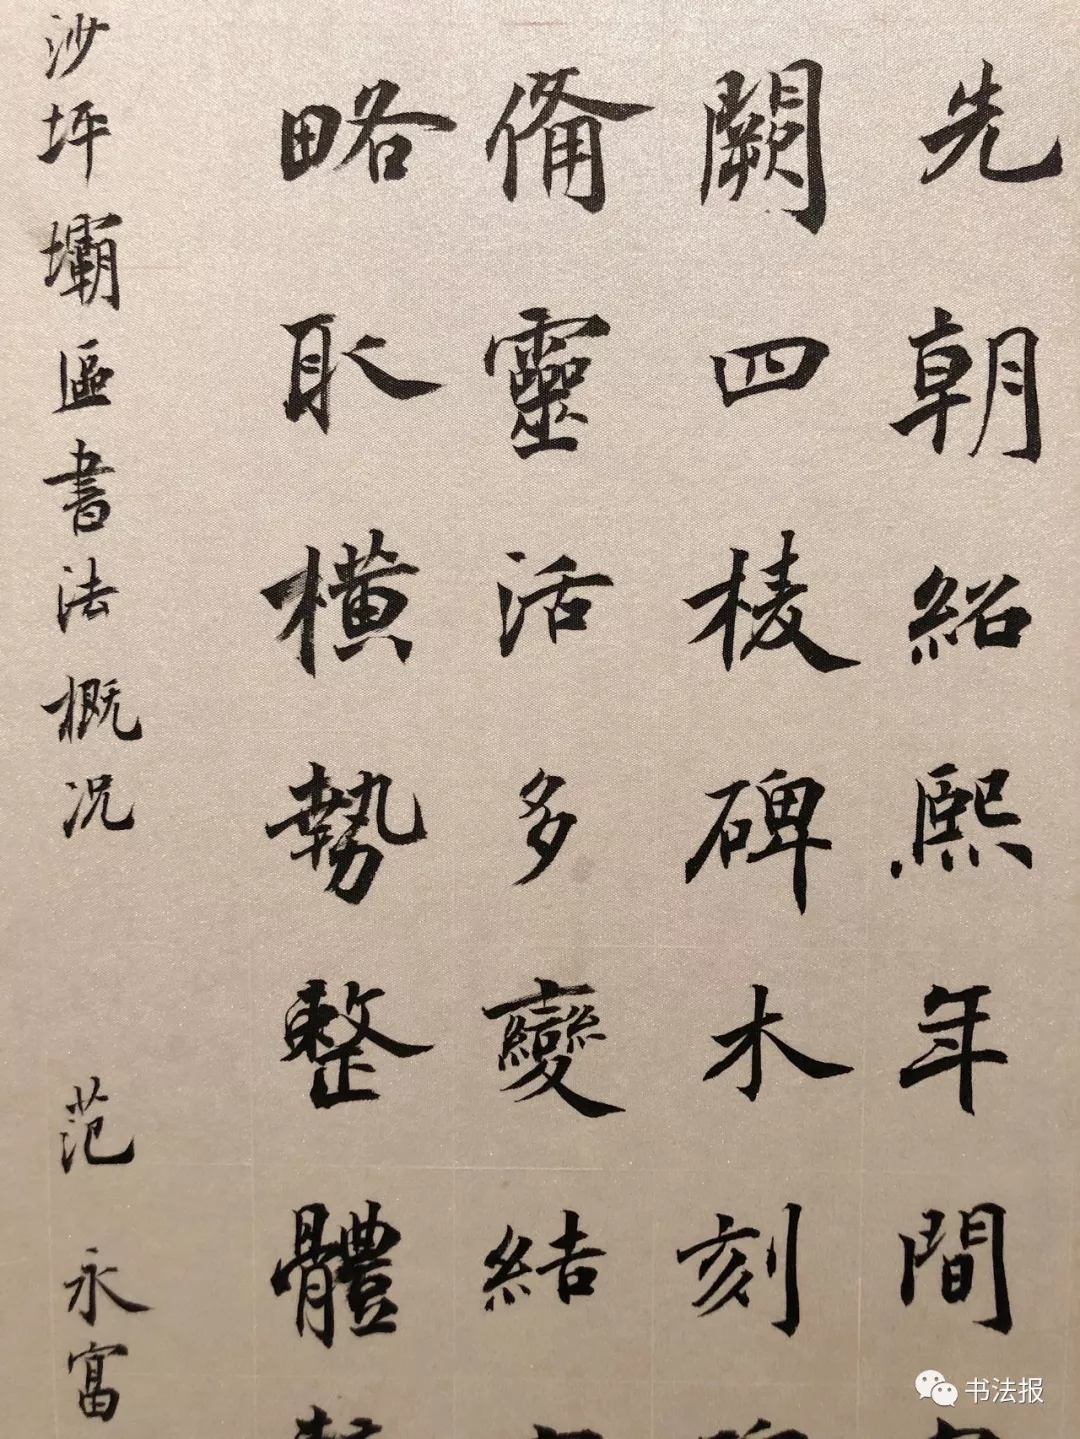 先朝紹熙年間
闕四棱碑木刻
備靈活多變結
略取橫勢整體
沙坪壩區書法概况 范永富
书法报